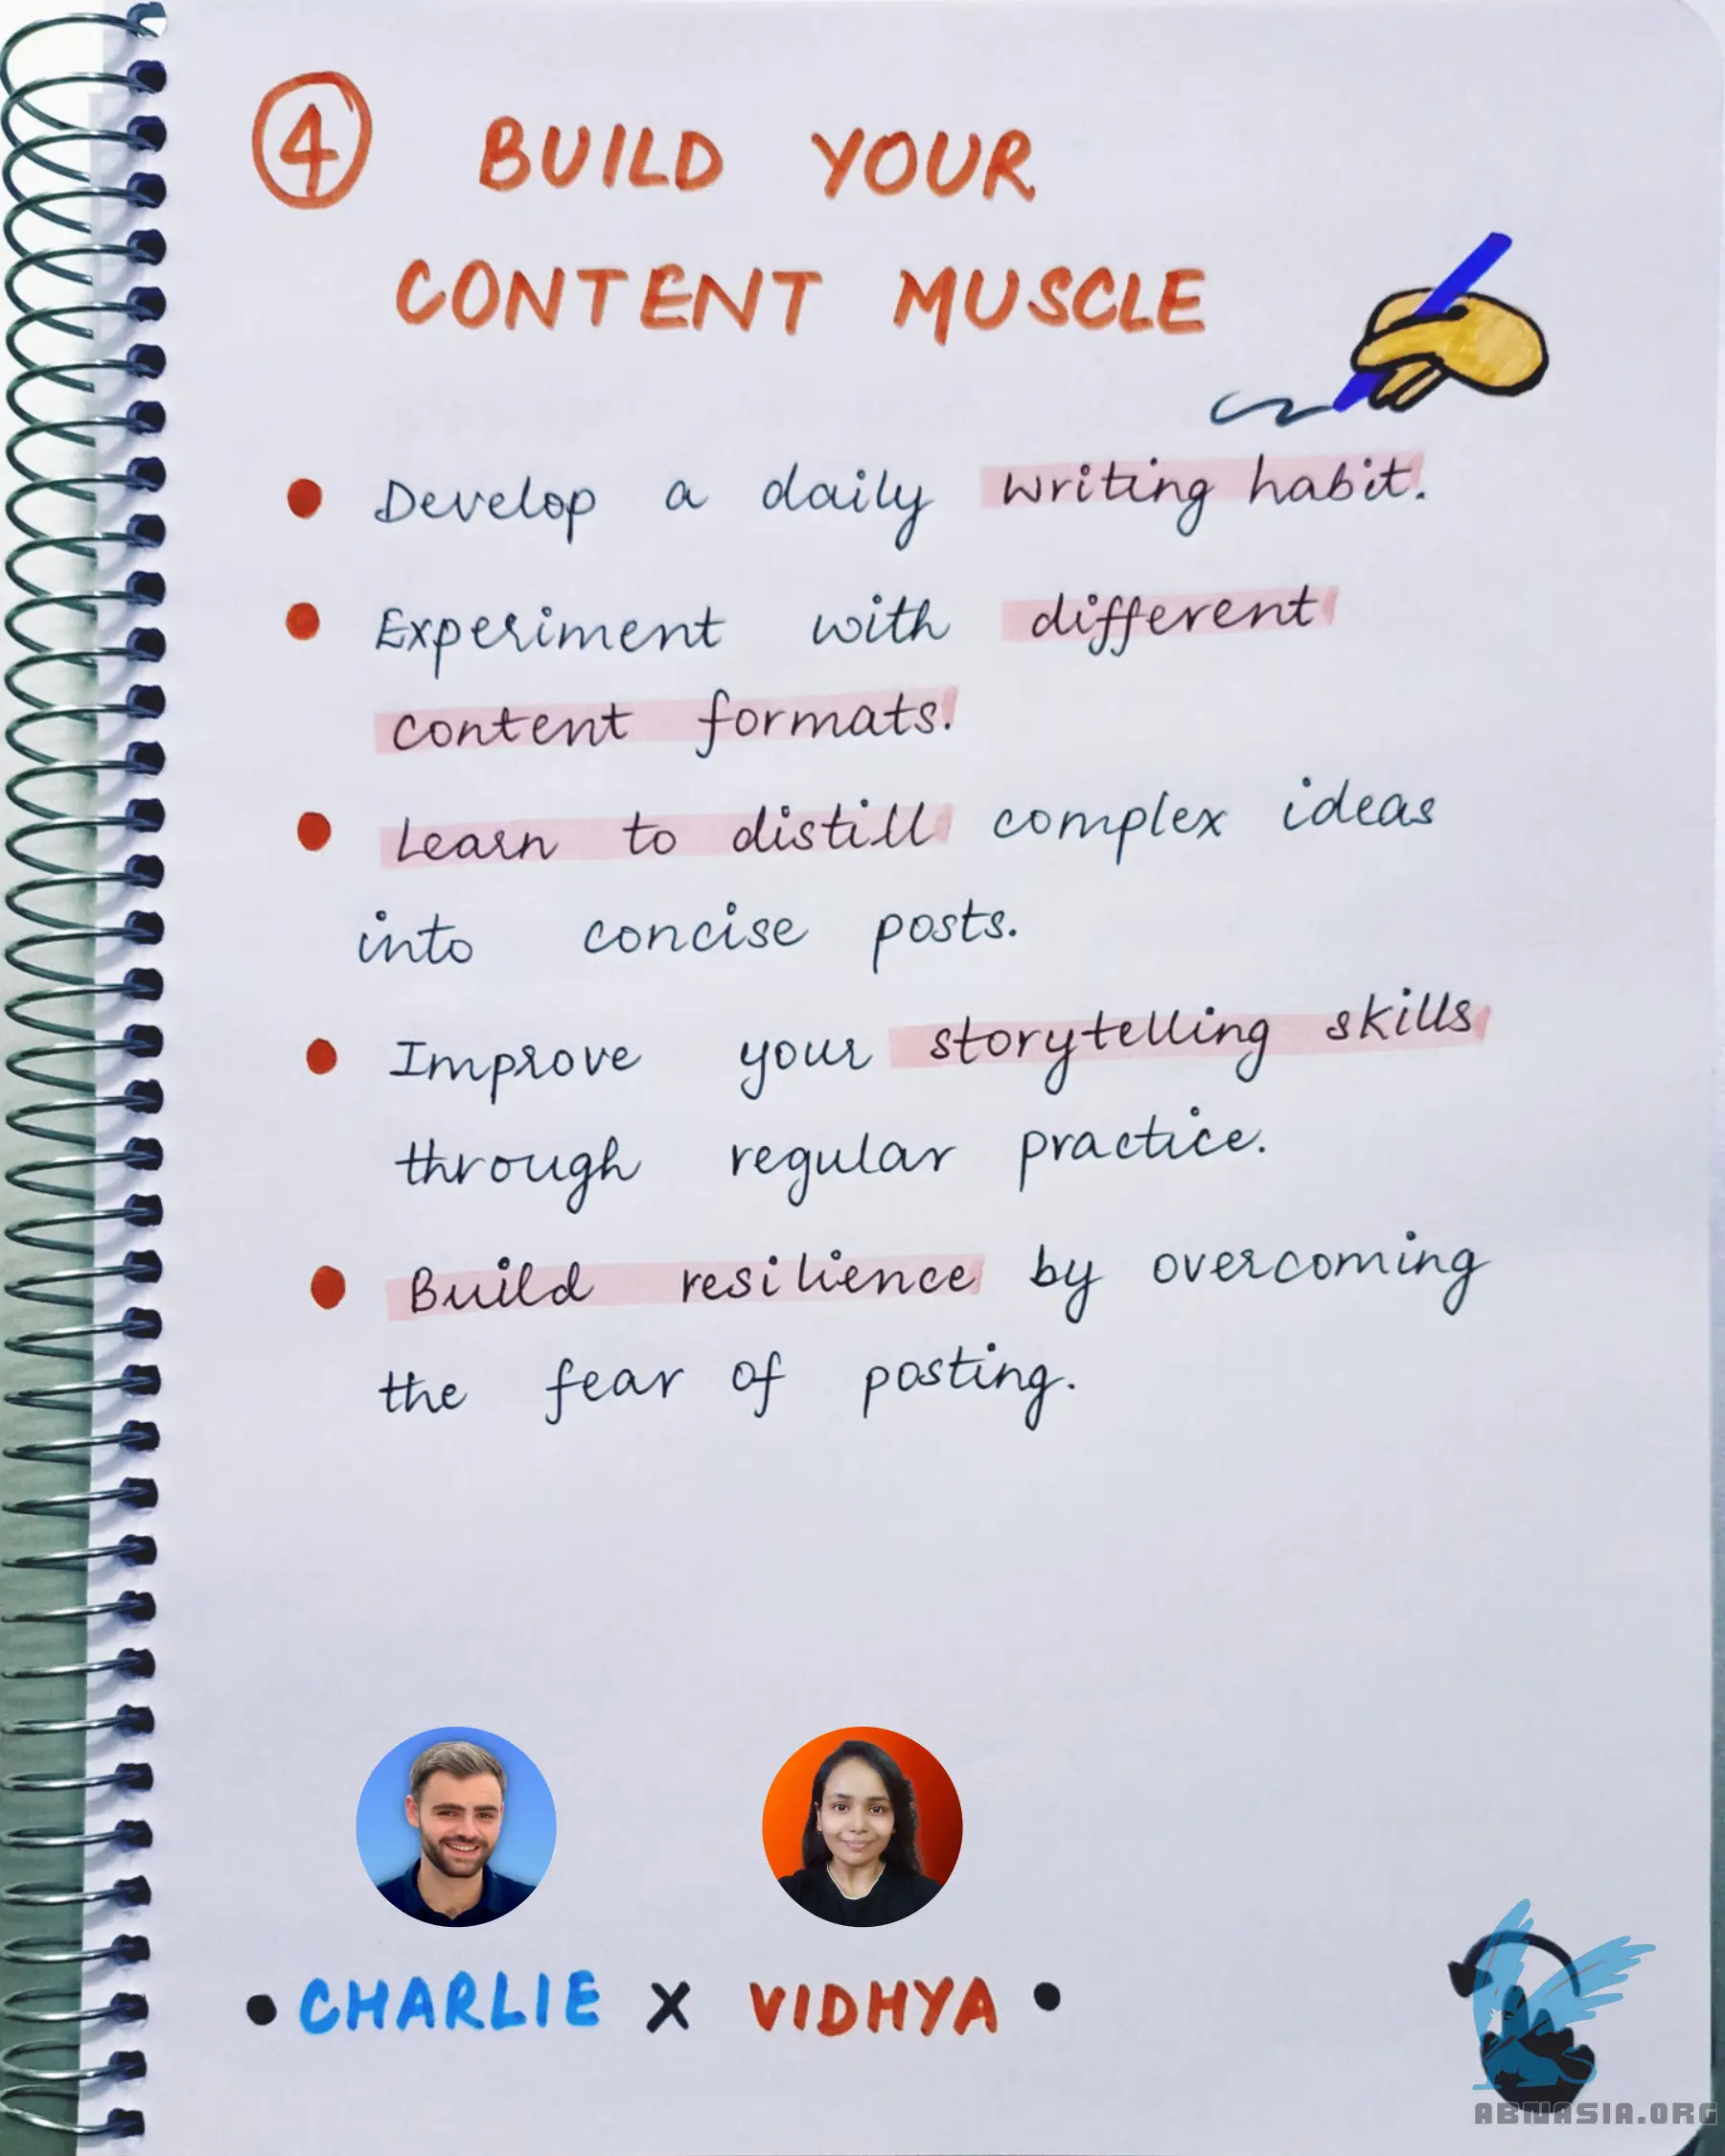 4 BUILD YOUR
CONTENT MUSCLE
• Develop a daily writing habit.
• Experiment with different
content formats.
• Learn to distill complex ideas
into concise posts.
• Improve your storytelling skills
through regular practice.
• Build resilience by overcoming
the fear of posting.
• CHARLIE X VIDHYA •
ABNASIA.ORG